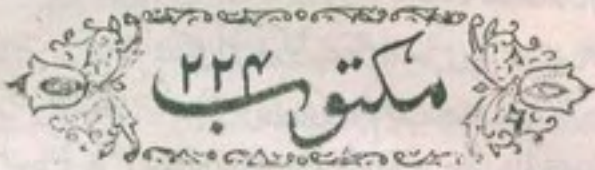 مکتوب ۲۲۴